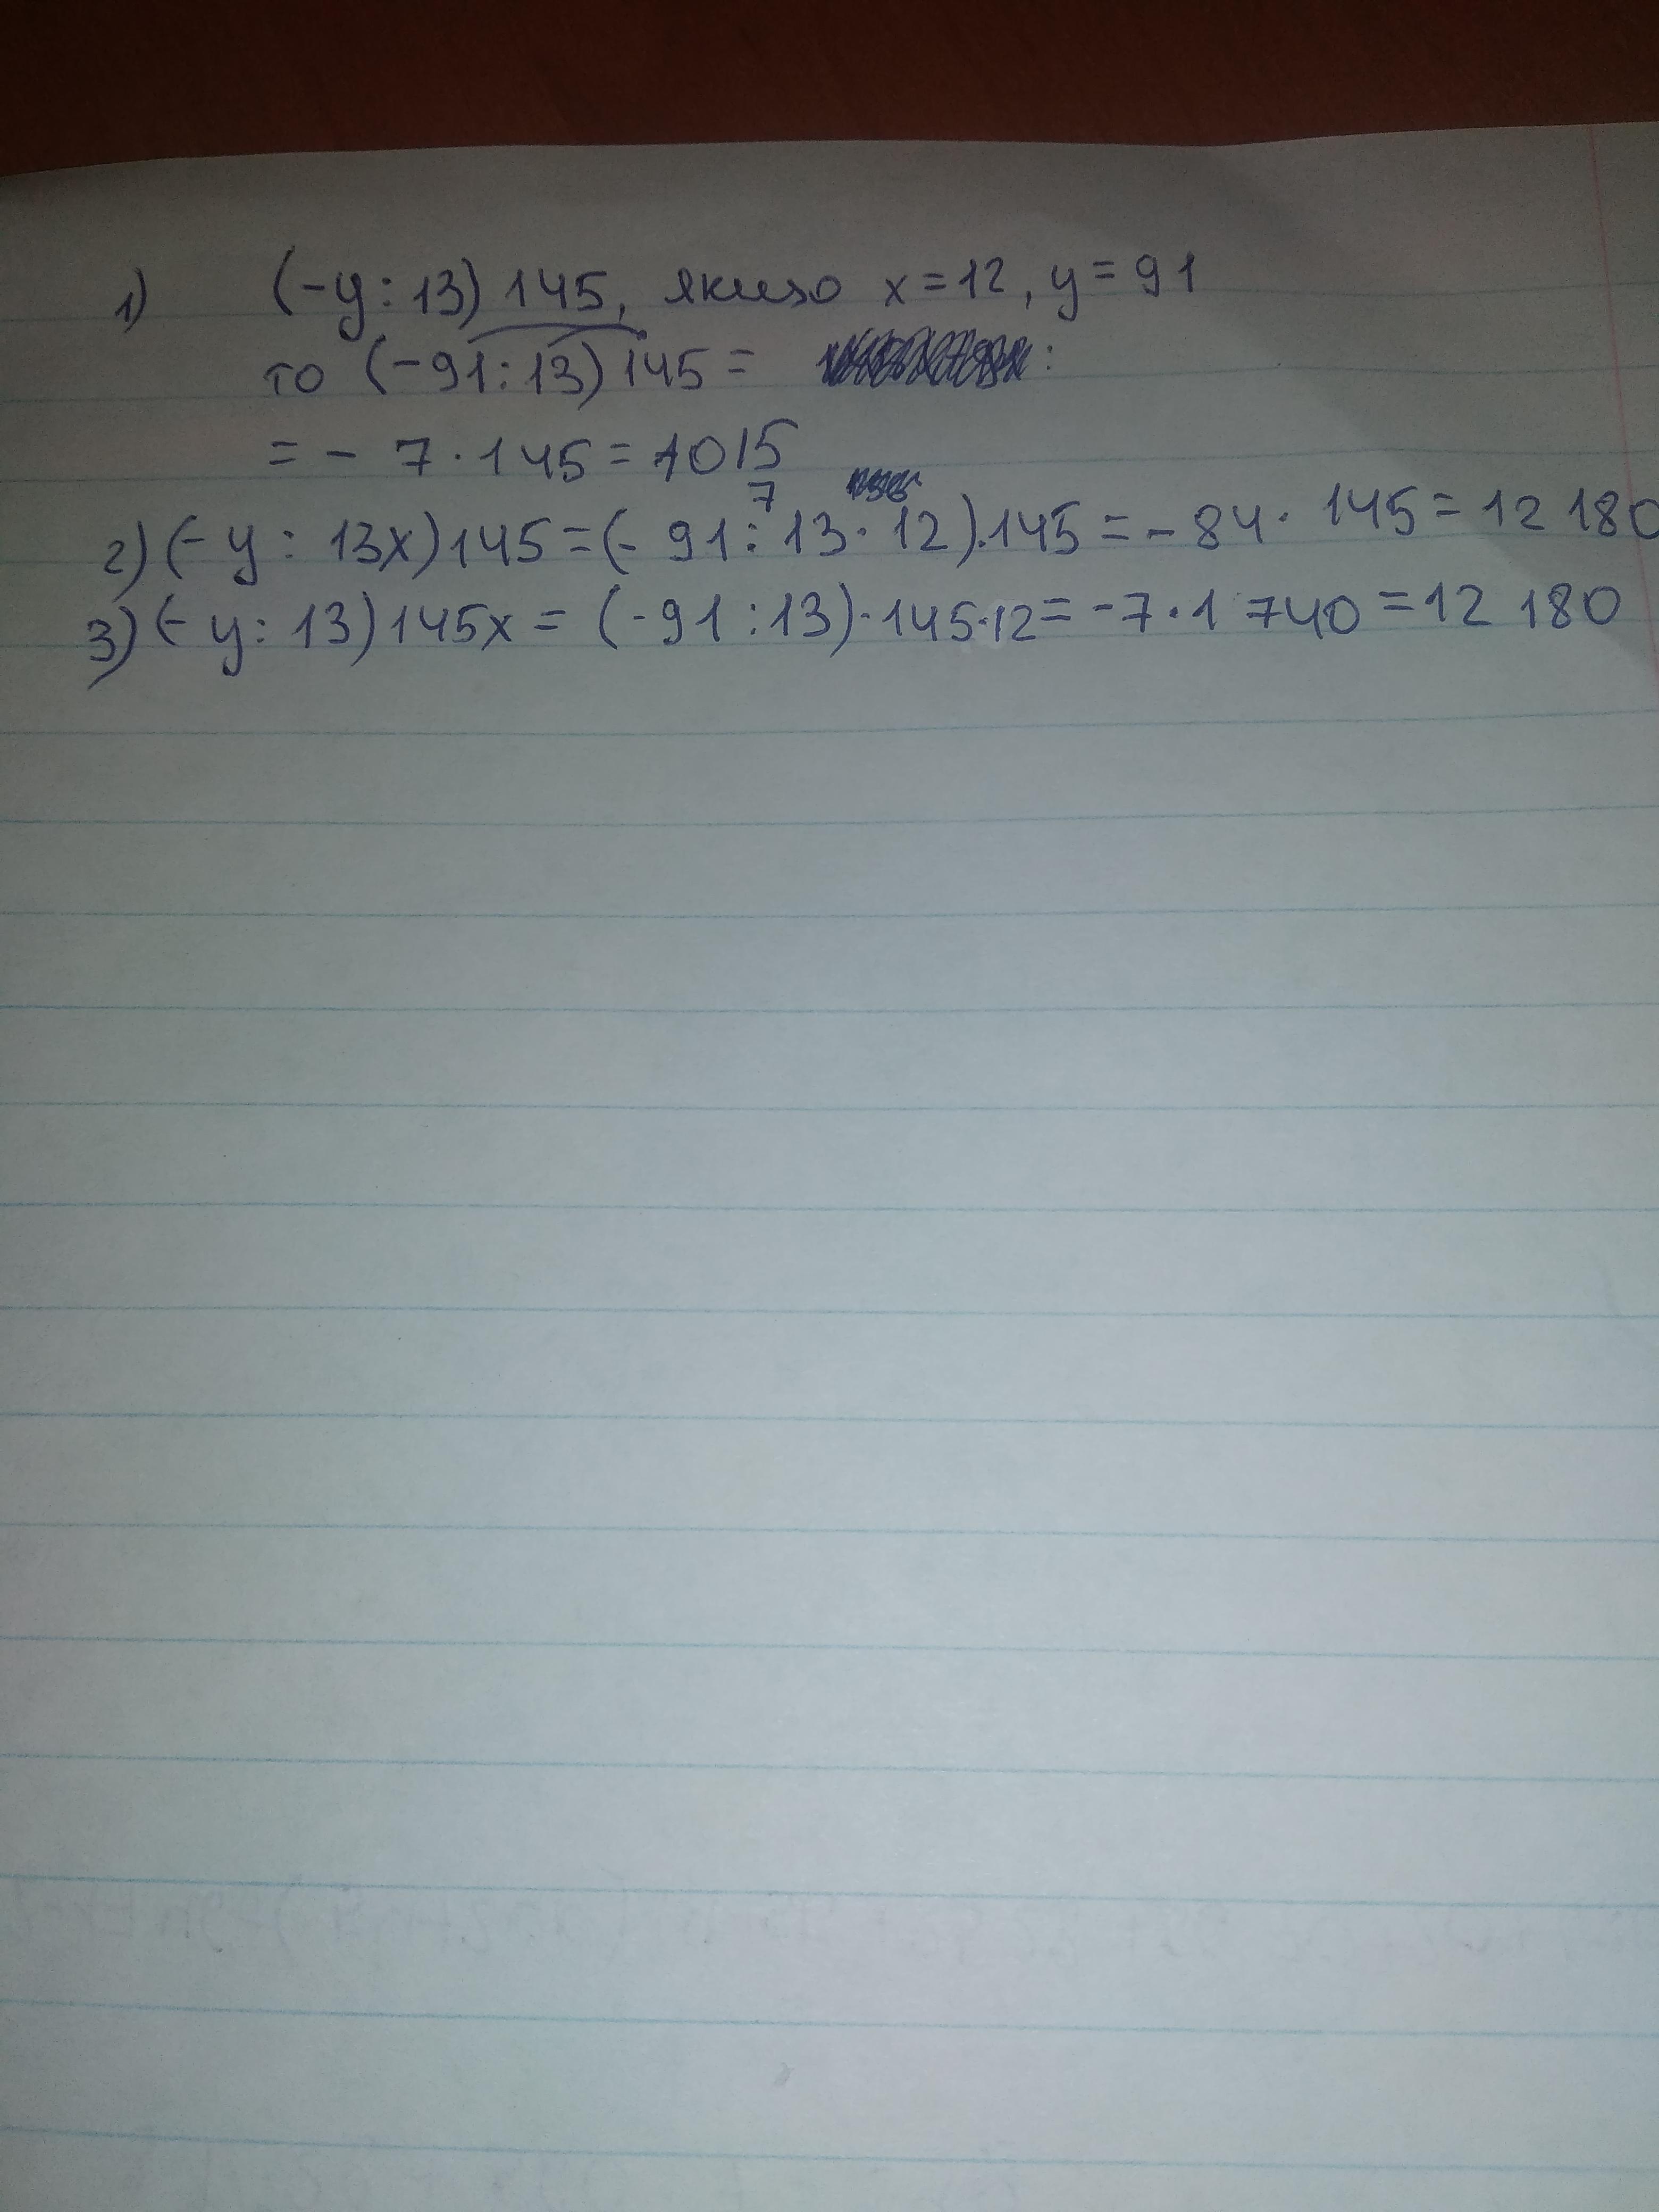 1) (-y : 13) 145, якщо x = 12, y = 91
то (-91 : 13) 145 =
= - 7 · 145 = 1015
7
2) (- y : 13x) 145 = (- 91 : 13 · 12) · 145 = - 84 · 145 = 12 180
3) (- y : 13) 145x = (-91 : 13) · 145 · 12 = -7 · 1 740 = 12 180